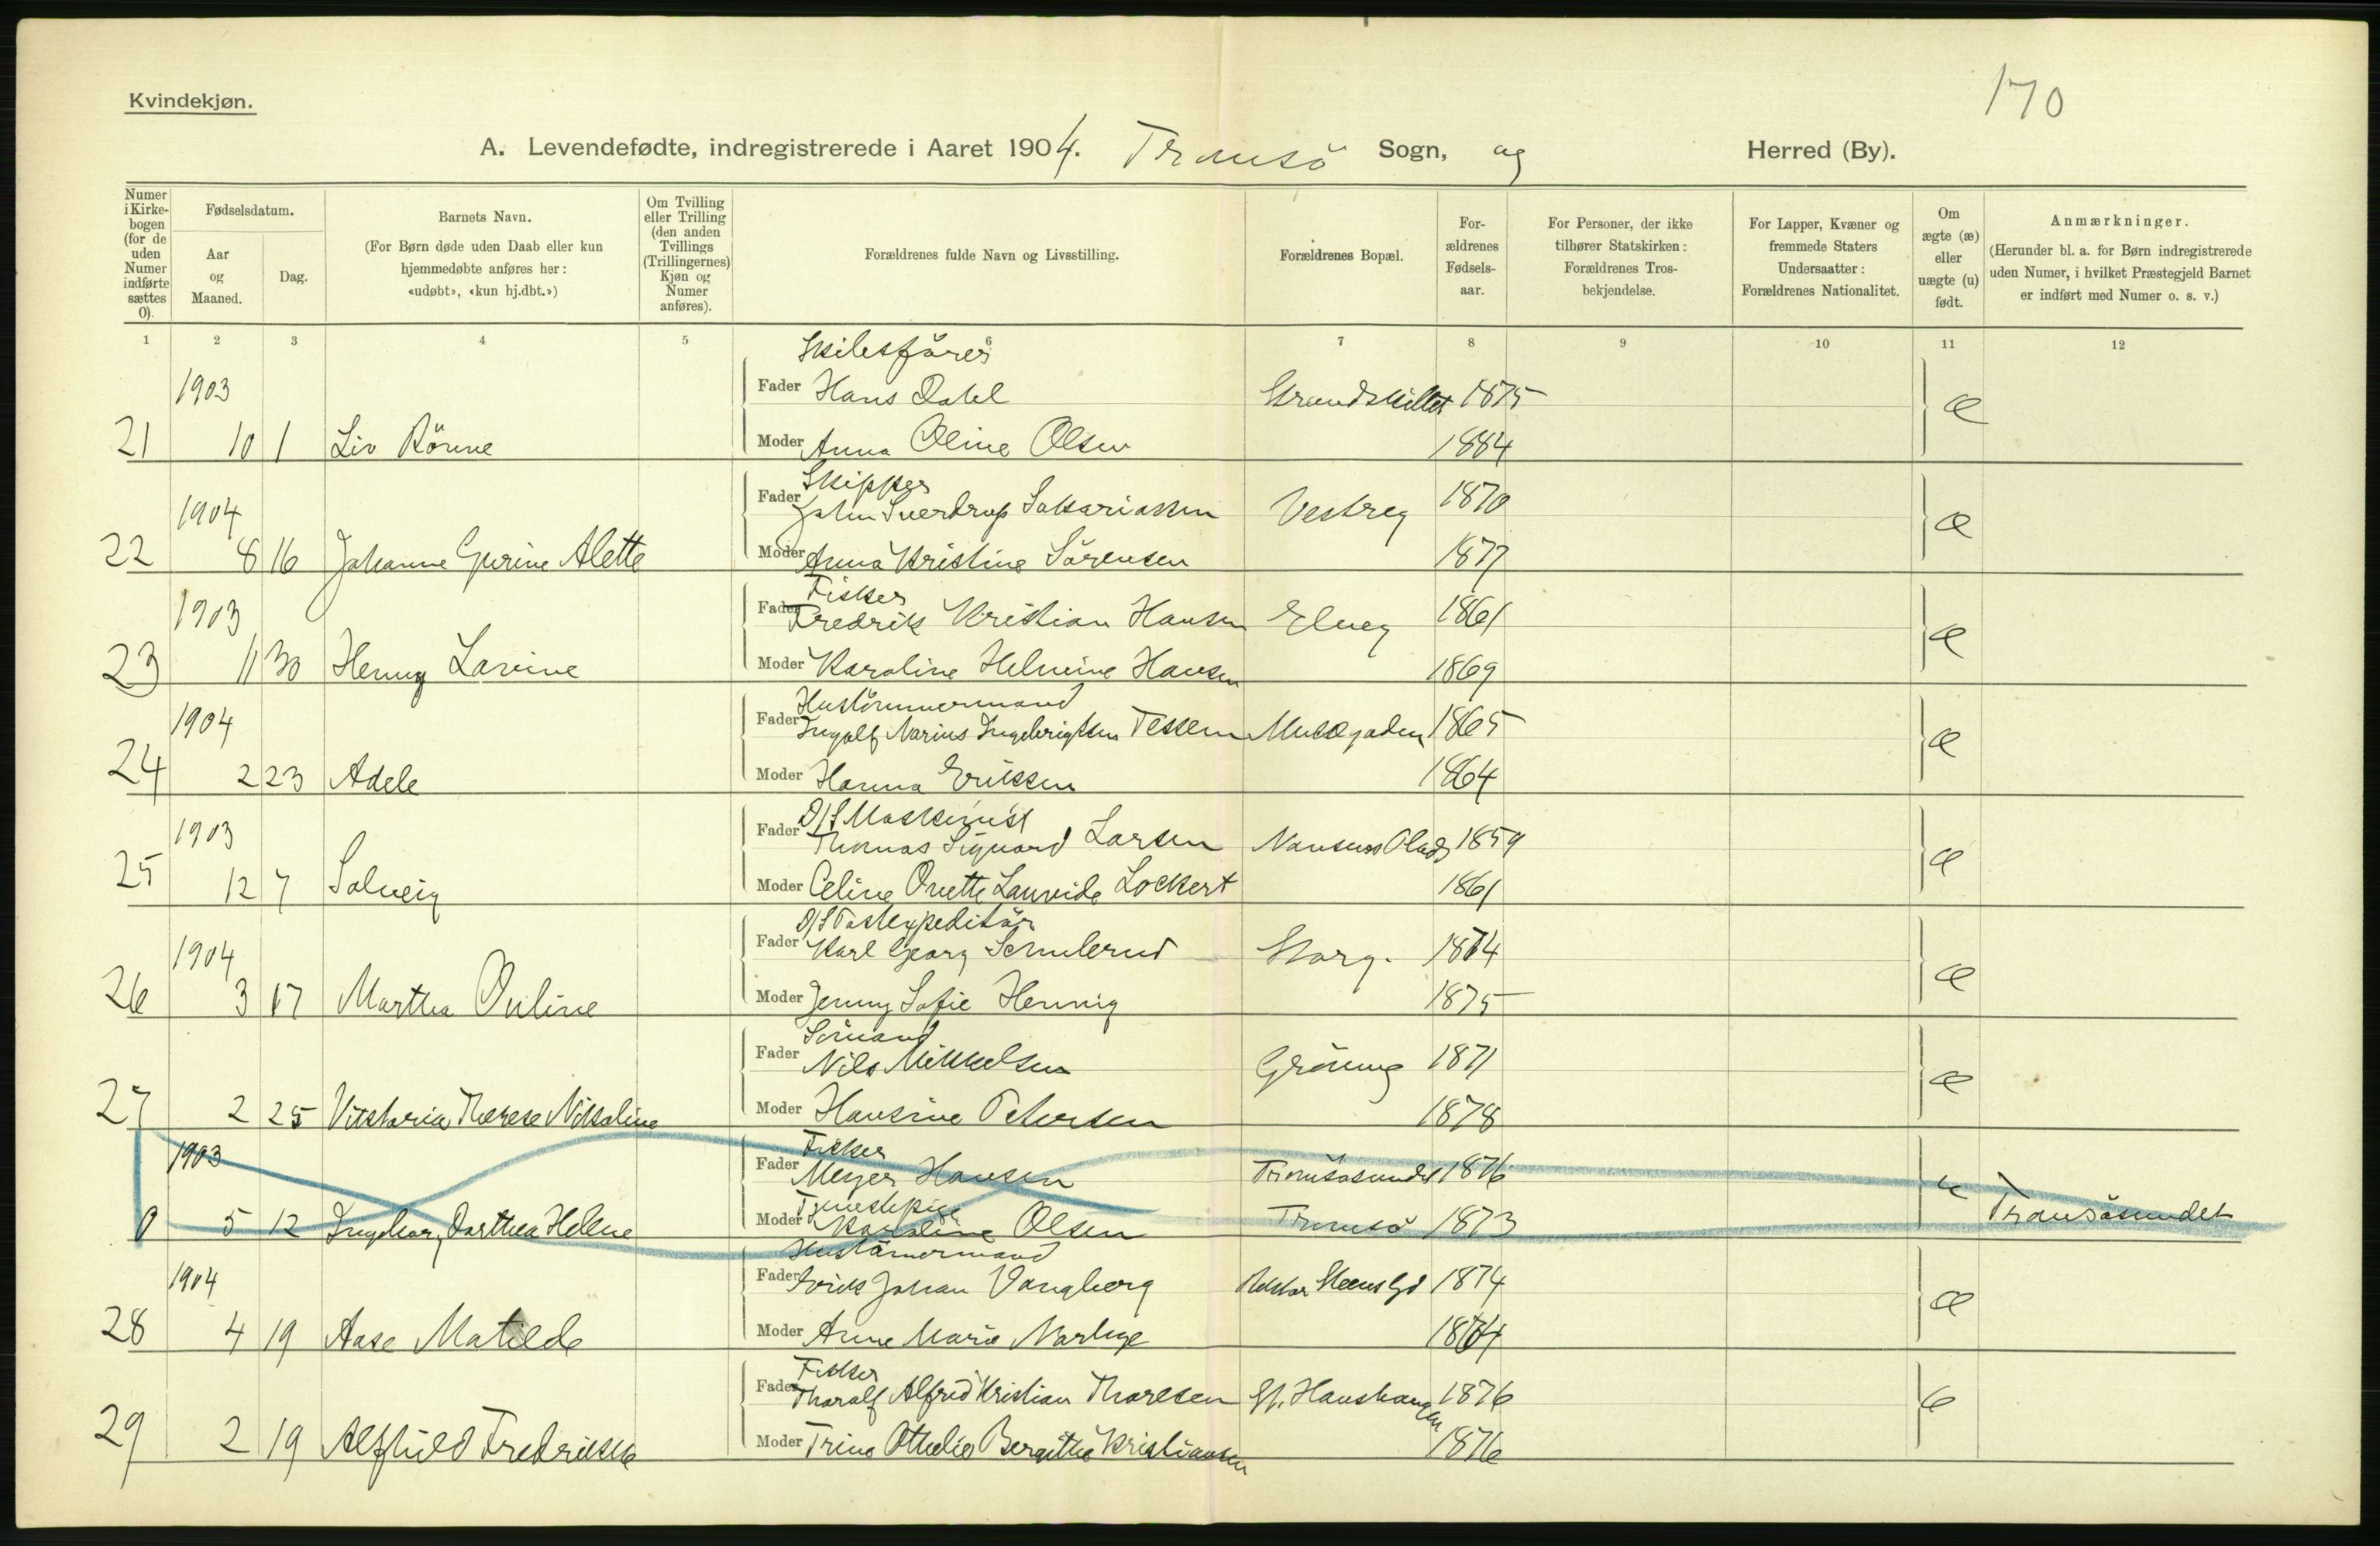 170
Kvindekjøn.
A. Levendefødte, indregistrerede i Aaret 1904. Tromsö Sogn, og Herred (By).
Numer i Kirkebogen (for de uden Numer indførte sættes 0).
Fødselsdatum.
Aar og Maaned.
Dag.
Barnets Navn.
(For Børn døde uden Daab eller kun hjemmedøbte anføres her: «udøbt», «kun hj.dbt.»)
Om Tvilling eller Trilling (den anden Tvillings (Trillingernes) Kjøn og Numer anføres).
Forældrenes fulde Navn og Livsstilling.
Forældrenes Bopæl.
Forældrenes Fødselsaar.
For Personer, der ikke tilhører Statskirken: Forældrenes Trosbekjendelse.
For Lapper, Kvæner og fremmede Staters Undersaatter: Forældrenes Nationalitet.
Om ægte (æ) eller uægte (u) født.
Anmærkninger.
(Herunder bl. a. for Børn indregistrerede uden Numer, i hvilket Præstegjeld Barnet er indført med Numer o. s. v.)
1 2 3 4 5 6 7 8 9 10 11 12
Skibsförer
1903 Fader Hans Dahl Strandskillet 1875 æ
21 10 1 Liv Rönne Moder Anna Oline Olsen 1884
Skipper
1904 Fader Johan Sverdrup Sakariassen Vestreg 1870 æ
22 8 16 Johanne Gurine Alette Moder Anna Kristine Sörensen 1877
Fisker
1903 Fader Fredrik Kristian Hansen Elveg 1861 æ
23 11 30 Henny Lavine Moder Karoline Helmine Hansen 1869
Hustömmermand
1904 Fader Ingolf Marius Ingebrigtsen Tessem Musegaden 1865 æ
24 2 23 Adele Moder Hanna Erikssen 1864
D/S Maskinist
1903 Fader Thomas Siguard Larsen Nansens Plads 1859 æ
25 12 7 Solveig Moder Celine Ovette Lauvide Lockert 1861
D/S Postexpeditör
1904 Fader Karl Georg Schulerud Storg. 1874 æ
26 3 17 Martha Ovline Moder Jenny Sofie Hennig 1875
Sömand
Fader Nils Mikkelsen Gröneng 1871 æ
27 2 25 Viktoria Therese Nikoline Moder Hansine Petersen 1878
Fisker
1903 Fader Meyer Hansen Tromsösundet 1876 u Tromsösundet
Tjenestepige
0 5 12 Ingebor, Dorthea Helene Moder Karoline Olsen Tromsö 1873
Hustömermand
1904 Fader Erik Johan Vangberg Rektor Steens Gd 1874 æ
28 4 19 Aase Matilde Moder Anne Marie 1874
Fisker
Fader Thoralf Alfred Kristian Thoresen St. Hanshaugen 1876 æ
29 2 19 Alfhild Fredrikke Moder Trine Othelie Bergithe Kristiansen 1876